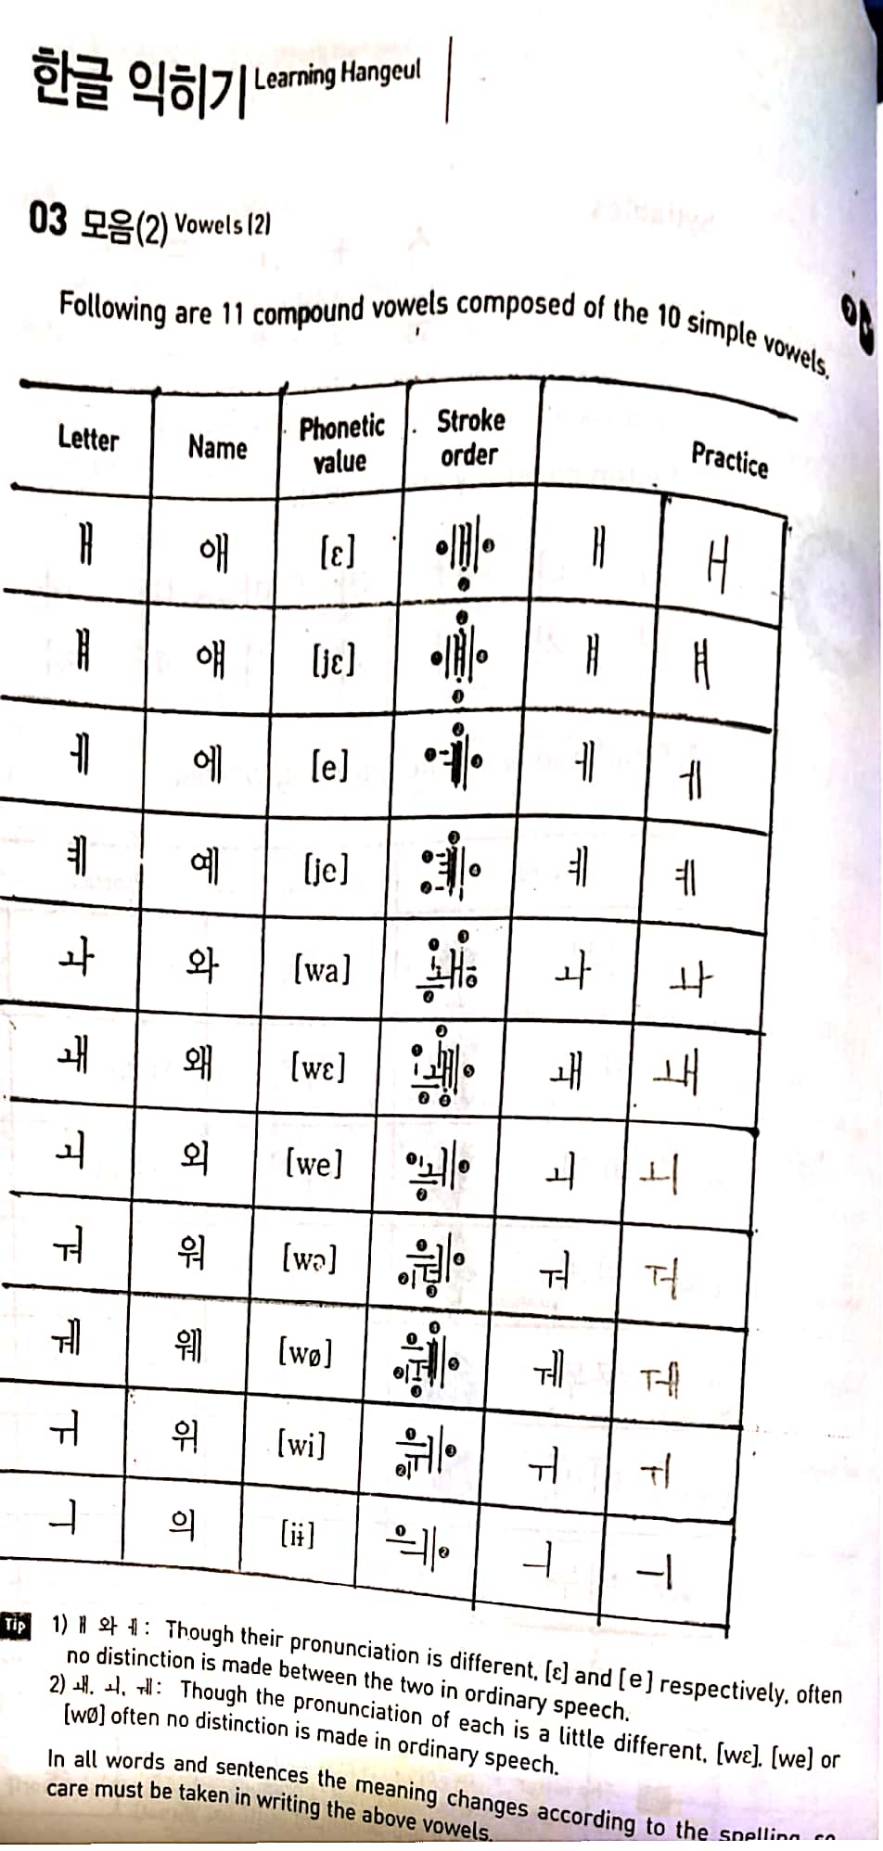 한글 익히기 Learning Hangeul
03 모음(2) Vowels (2)
Following are 11 compound vowels composed of the 10 simple vowels.
Letter Name Phonetic value Stroke order Practice
ㅐ 애 [ɛ] ㅐ ㅐ ㅐ
ㅒ 얘 [jɛ] ㅒ ㅒ ㅒ
ㅔ 에 [e] ㅔ ㅔ ㅔ
ㅖ 예 [je] ㅖ ㅖ ㅖ
ㅘ 와 [wa] ㅘ ㅘ ㅘ
ㅙ 왜 [wɛ] ㅙ ㅙ ㅙ
ㅚ 외 [we] ㅚ ㅚ ㅚ
ㅝ 워 [wə] ㅝ ㅝ ㅝ
ㅞ 웨 [wø] ㅞ ㅞ ㅞ
ㅟ 위 [wi] ㅟ ㅟ ㅟ
ㅢ 의 [iɨ] ㅢ ㅢ ㅢ
Tip 1) ㅐ 와 ㅔ : Though their pronunciation is different, [ɛ] and [e] respectively, often
no distinction is made between the two in ordinary speech.
2) ㅙ, ㅚ, ㅞ : Though the pronunciation of each is a little different, [wɛ], [we] or
[wø] often no distinction is made in ordinary speech.
In all words and sentences the meaning changes according to the spelling so
care must be taken in writing the above vowels.